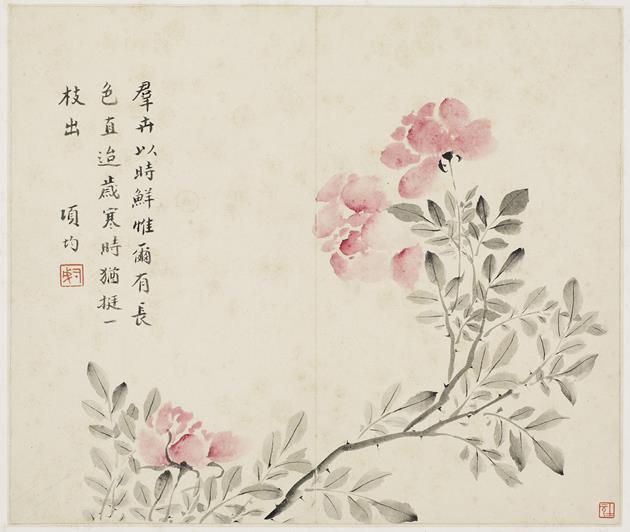 羣卉以時鮮惟爾有長
色直迨歲寒時猶挺一
枝出
項均
均